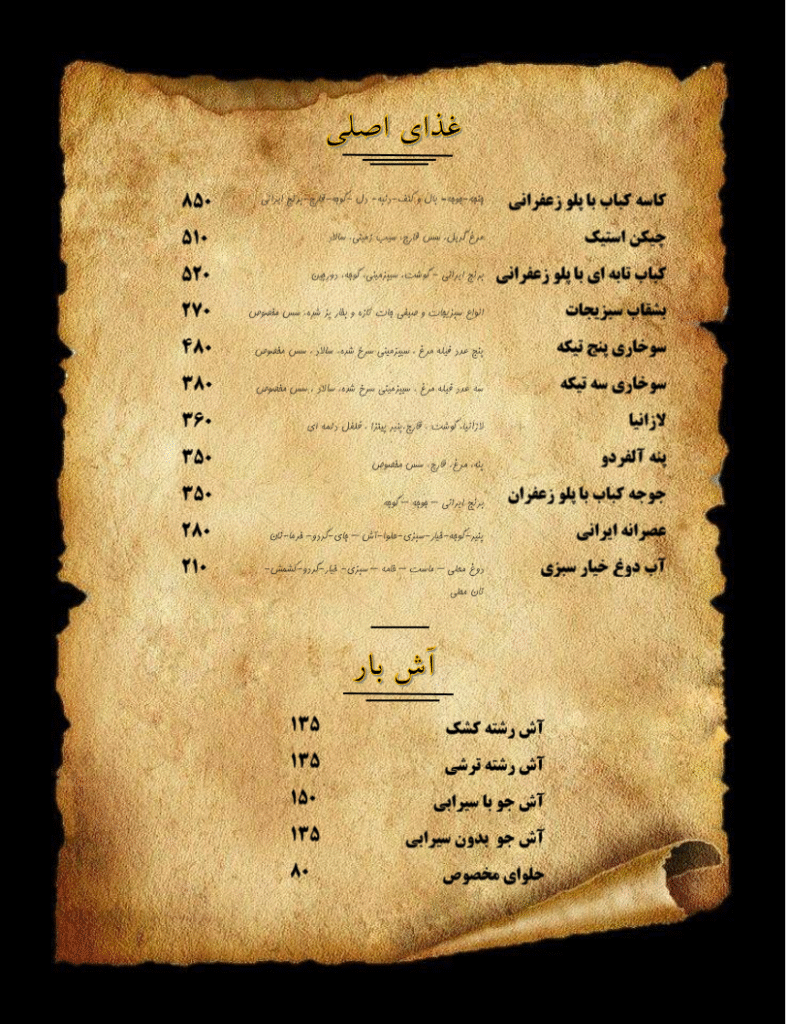 غذای اصلی
کاسه کباب با پلو زعفرانی پنجه-جوجه- بال و کتف-دنبه- دل -گوجه-قارچ-برنج ایرانی ۸۵۰
چیکن استیک مرغ گریل، سس قارچ، سیب زمینی، سالاد ۵۱۰
کباب تابه ای با پلو زعفرانی برنج ایرانی - گوشت، سیبزمینی، گوجه، دورچین ۵۲۰
بشقاب سبزیجات انواع سبزیجات و صیفی جات تازه و بخار پز شده، سس مخصوص ۲۷۰
سوخاری پنج تیکه پنج عدد فیله مرغ ، سیبزمینی سرخ شده، سالاد ، سس مخصوص ۴۸۰
سوخاری سه تیکه سه عدد فیله مرغ ، سیبزمینی سرخ شده، سالاد ، سس مخصوص ۳۸۰
لازانیا لازانیا، گوشت ، قارچ،پنیر پیتزا ، فلفل دلمه ای ۳۶۰
پنه آلفردو پنه، مرغ، قارچ، سس مخصوص ۳۵۰
جوجه کباب با پلو زعفران برنج ایرانی – جوجه – گوجه ۳۵۰
عصرانه ایرانی پنیر-گوجه-خیار-سبزی-حلوا-آش – چای-گردو- خرما-نان ۲۸۰
آب دوغ خیار سبزی دوغ محلی – ماست – خامه – سبزی- خیار-گردو-کشمش- ۲۱۰
نان محلی
آش بار
آش رشته کشک ۱۳۵
آش رشته ترشی ۱۳۵
آش جو با سیرابی ۱۵۰
آش جو بدون سیرابی ۱۳۵
حلوای مخصوص ۸۰